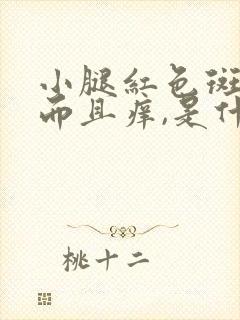 小腿红色斑
而且痒,是什
桃十二